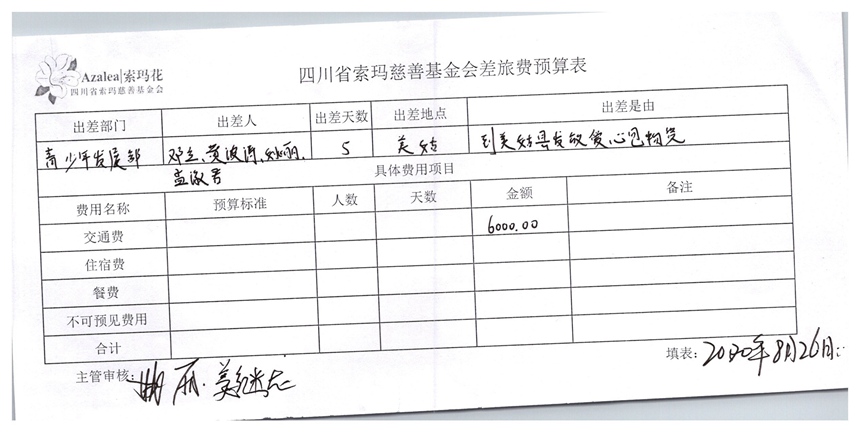 Azalea|索玛花
四川省索玛慈善基金会
四川省索玛慈善基金会差旅费预算表
出差部门 出差人 出差天数 出差地点 出差是由
青少年发展部 邓立、黄波涛、 5 美姑 到美姑县发放爱心包物资
孟淑芳
具体费用项目
费用名称 预算标准 人数 天数 金额 备注
交通费 6000.00
住宿费
餐费
不可预见费用
合计
主管审核: 填表: 2020年8月26日